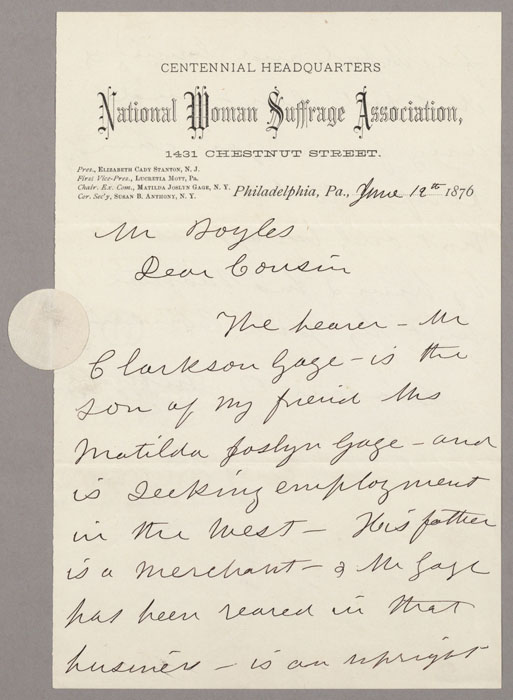 CENTENNIAL HEADQUARTERS
National Woman Suffrage Association,
1431 CHESTNUT STREET.
Pres., ELIZABETH CADY STANTON, N. J.
First Vice-Pres., LUCRETIA MOTT, PA.
Chair. Ex. Com., MATILDA JOSLYN GAGE, N. Y.
Cor. Sec'y, SUSAN B. ANTHONY, N. Y.
Philadelphia, Pa., June 12th 1876
Mr Boyles
Dear Cousin
The bearer - Mr
Clarkson Gage - is the
son of my friend Mrs
Matilda Joslyn Gage - and
is seeking employment
in the West - His father
is a merchant - & Mr Gage
has been reared in that
business - is an upright